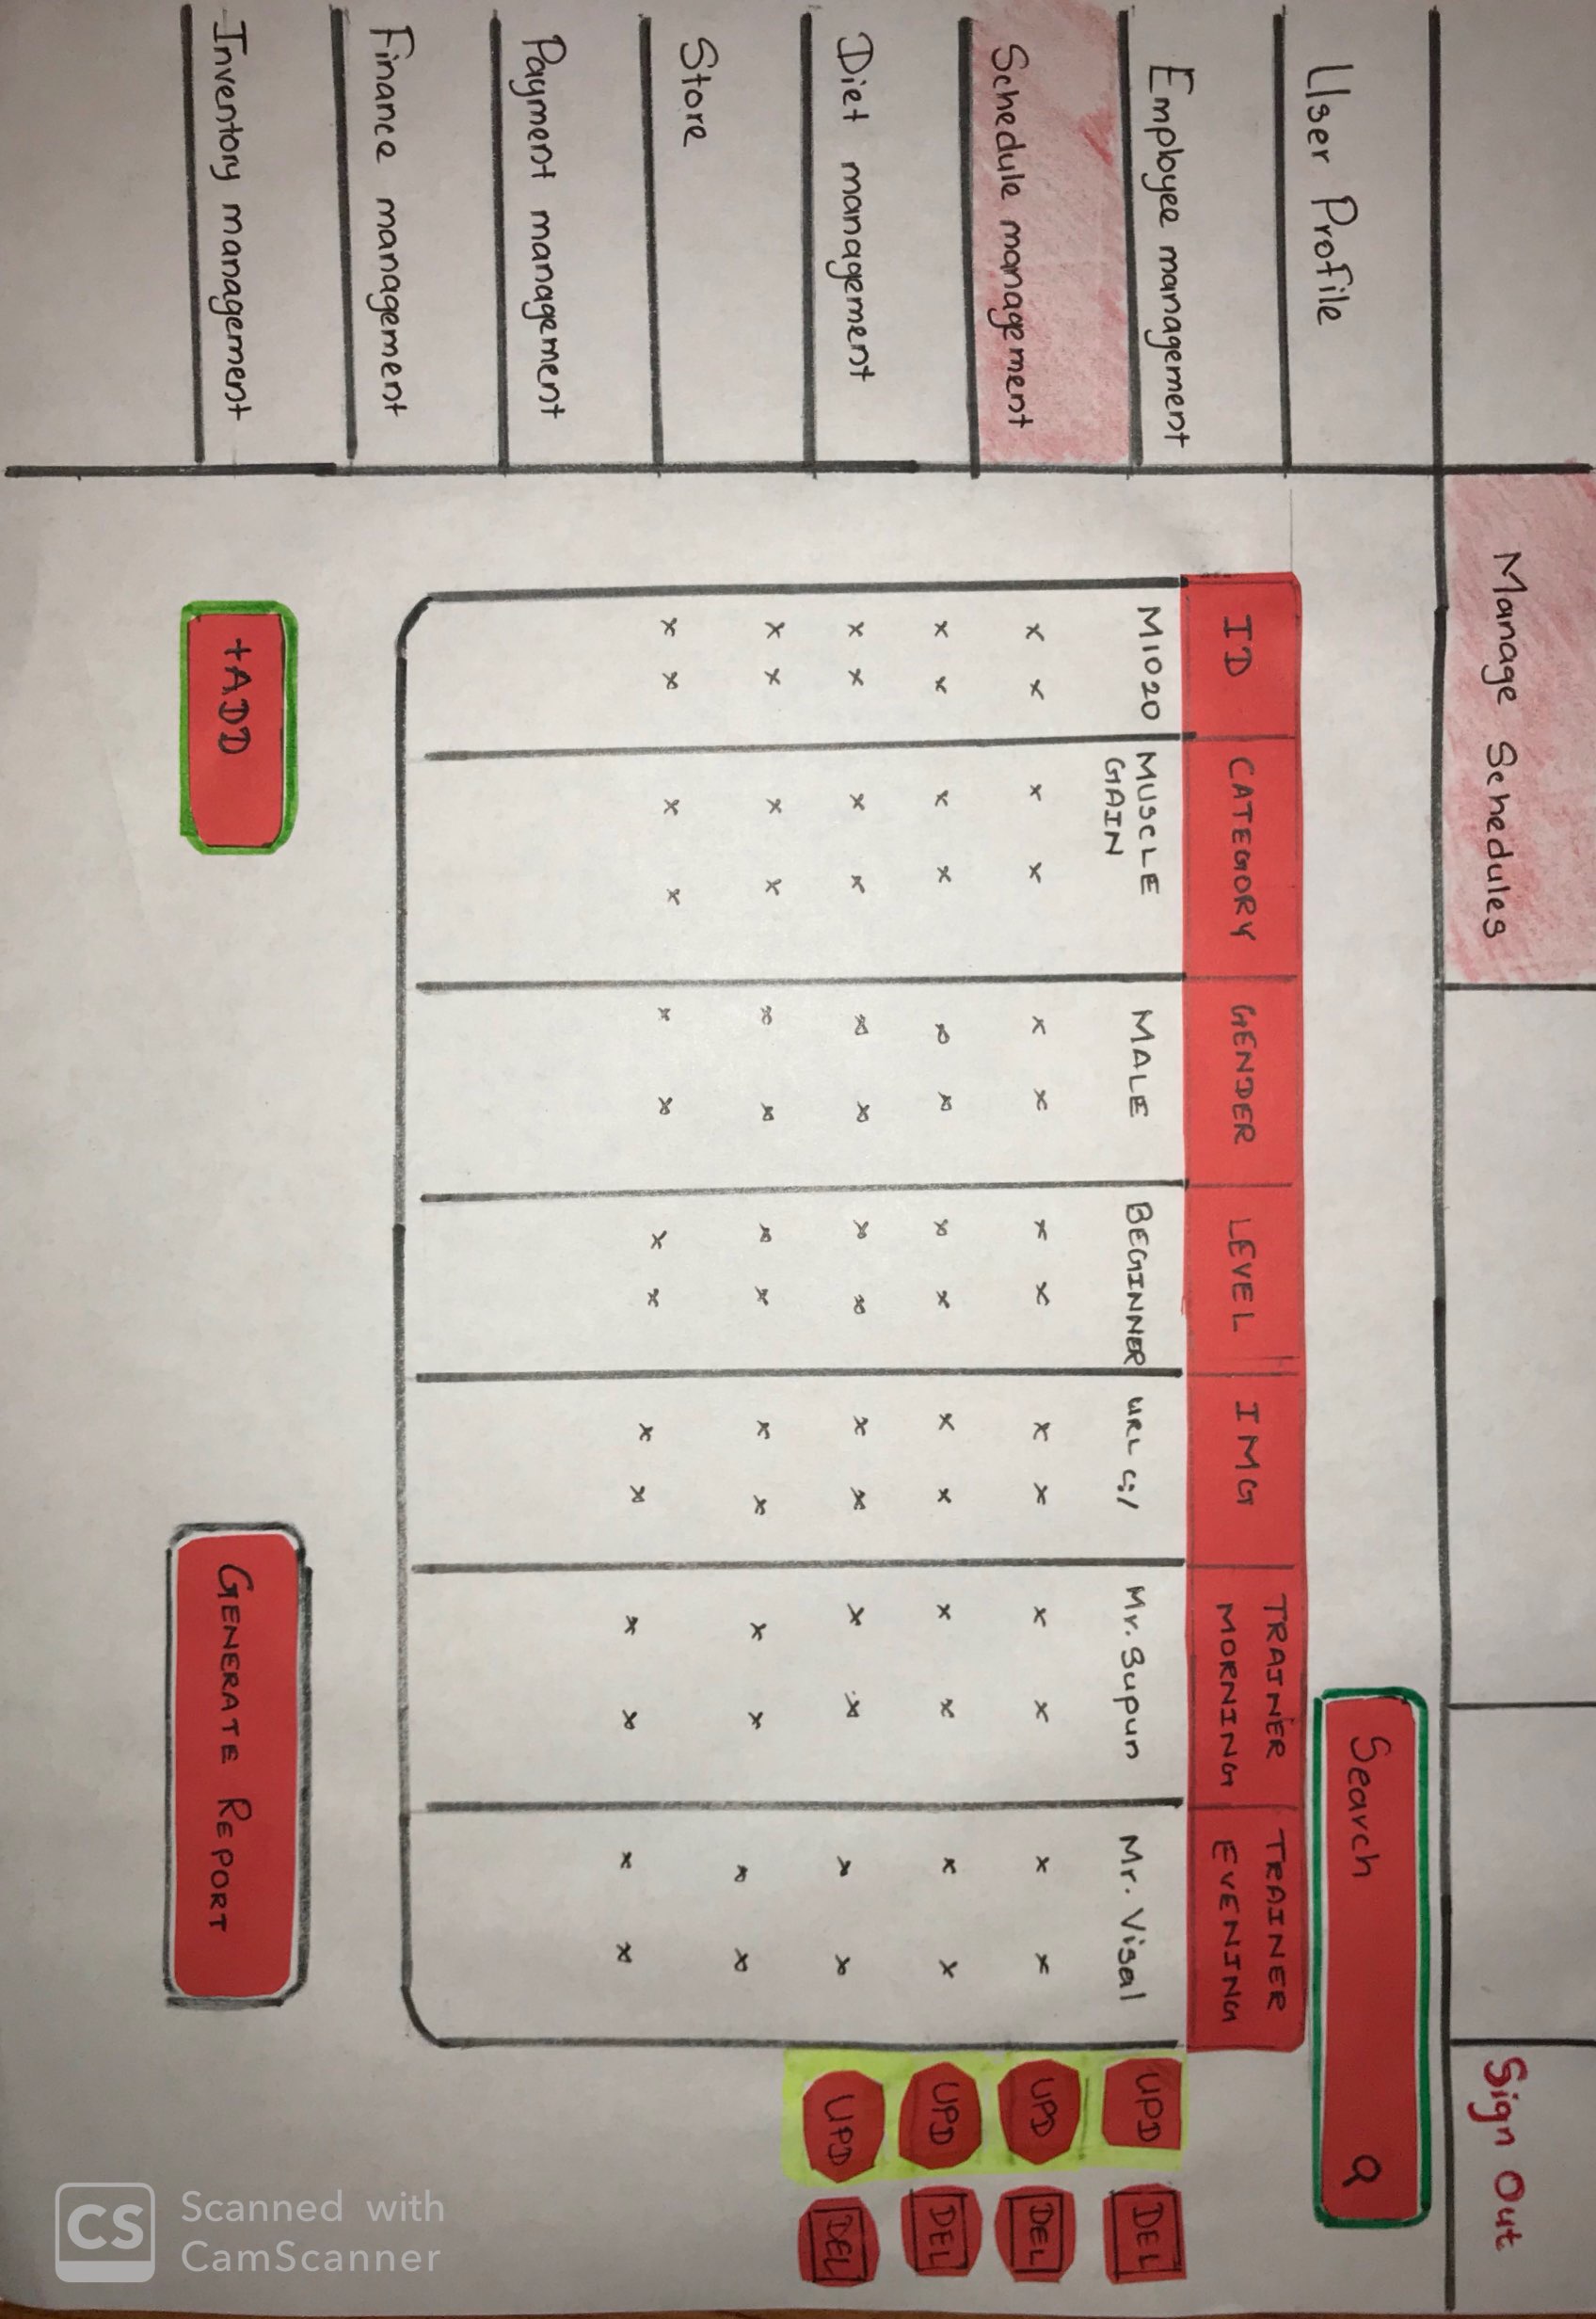 Manage Schedules
Sign Out
User Profile
Employee management
Schedule management
Diet management
Store
Payment management
Finance management
Inventory management
Search
ID
CATEGORY
GENDER
LEVEL
IMG
TRAINER
MORNING
TRAINER
EVENING
M1020
MUSCLE
GAIN
MALE
BEGINNER
URL C:/
Mr. Supun
Mr. Visal
UPD
DEL
x x x x x x x x x x x x x x
UPD
DEL
x x x x x x x x x x x x x x
UPD
DEL
x x x x x x x x x x x x x x
UPD
DEL
x x x x x x x x x x x x x x
x x x x x x x x x x x x x x
+ADD
GENERATE REPORT
CS
Scanned with
CamScanner